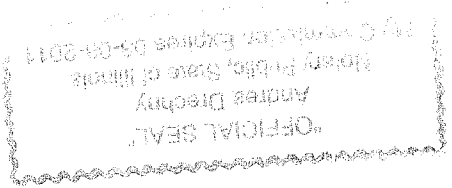 "OFFICIAL SEAL"
Andres Drechny
Notary Public, State of Illinois
My Commission Expires 03-09-2011